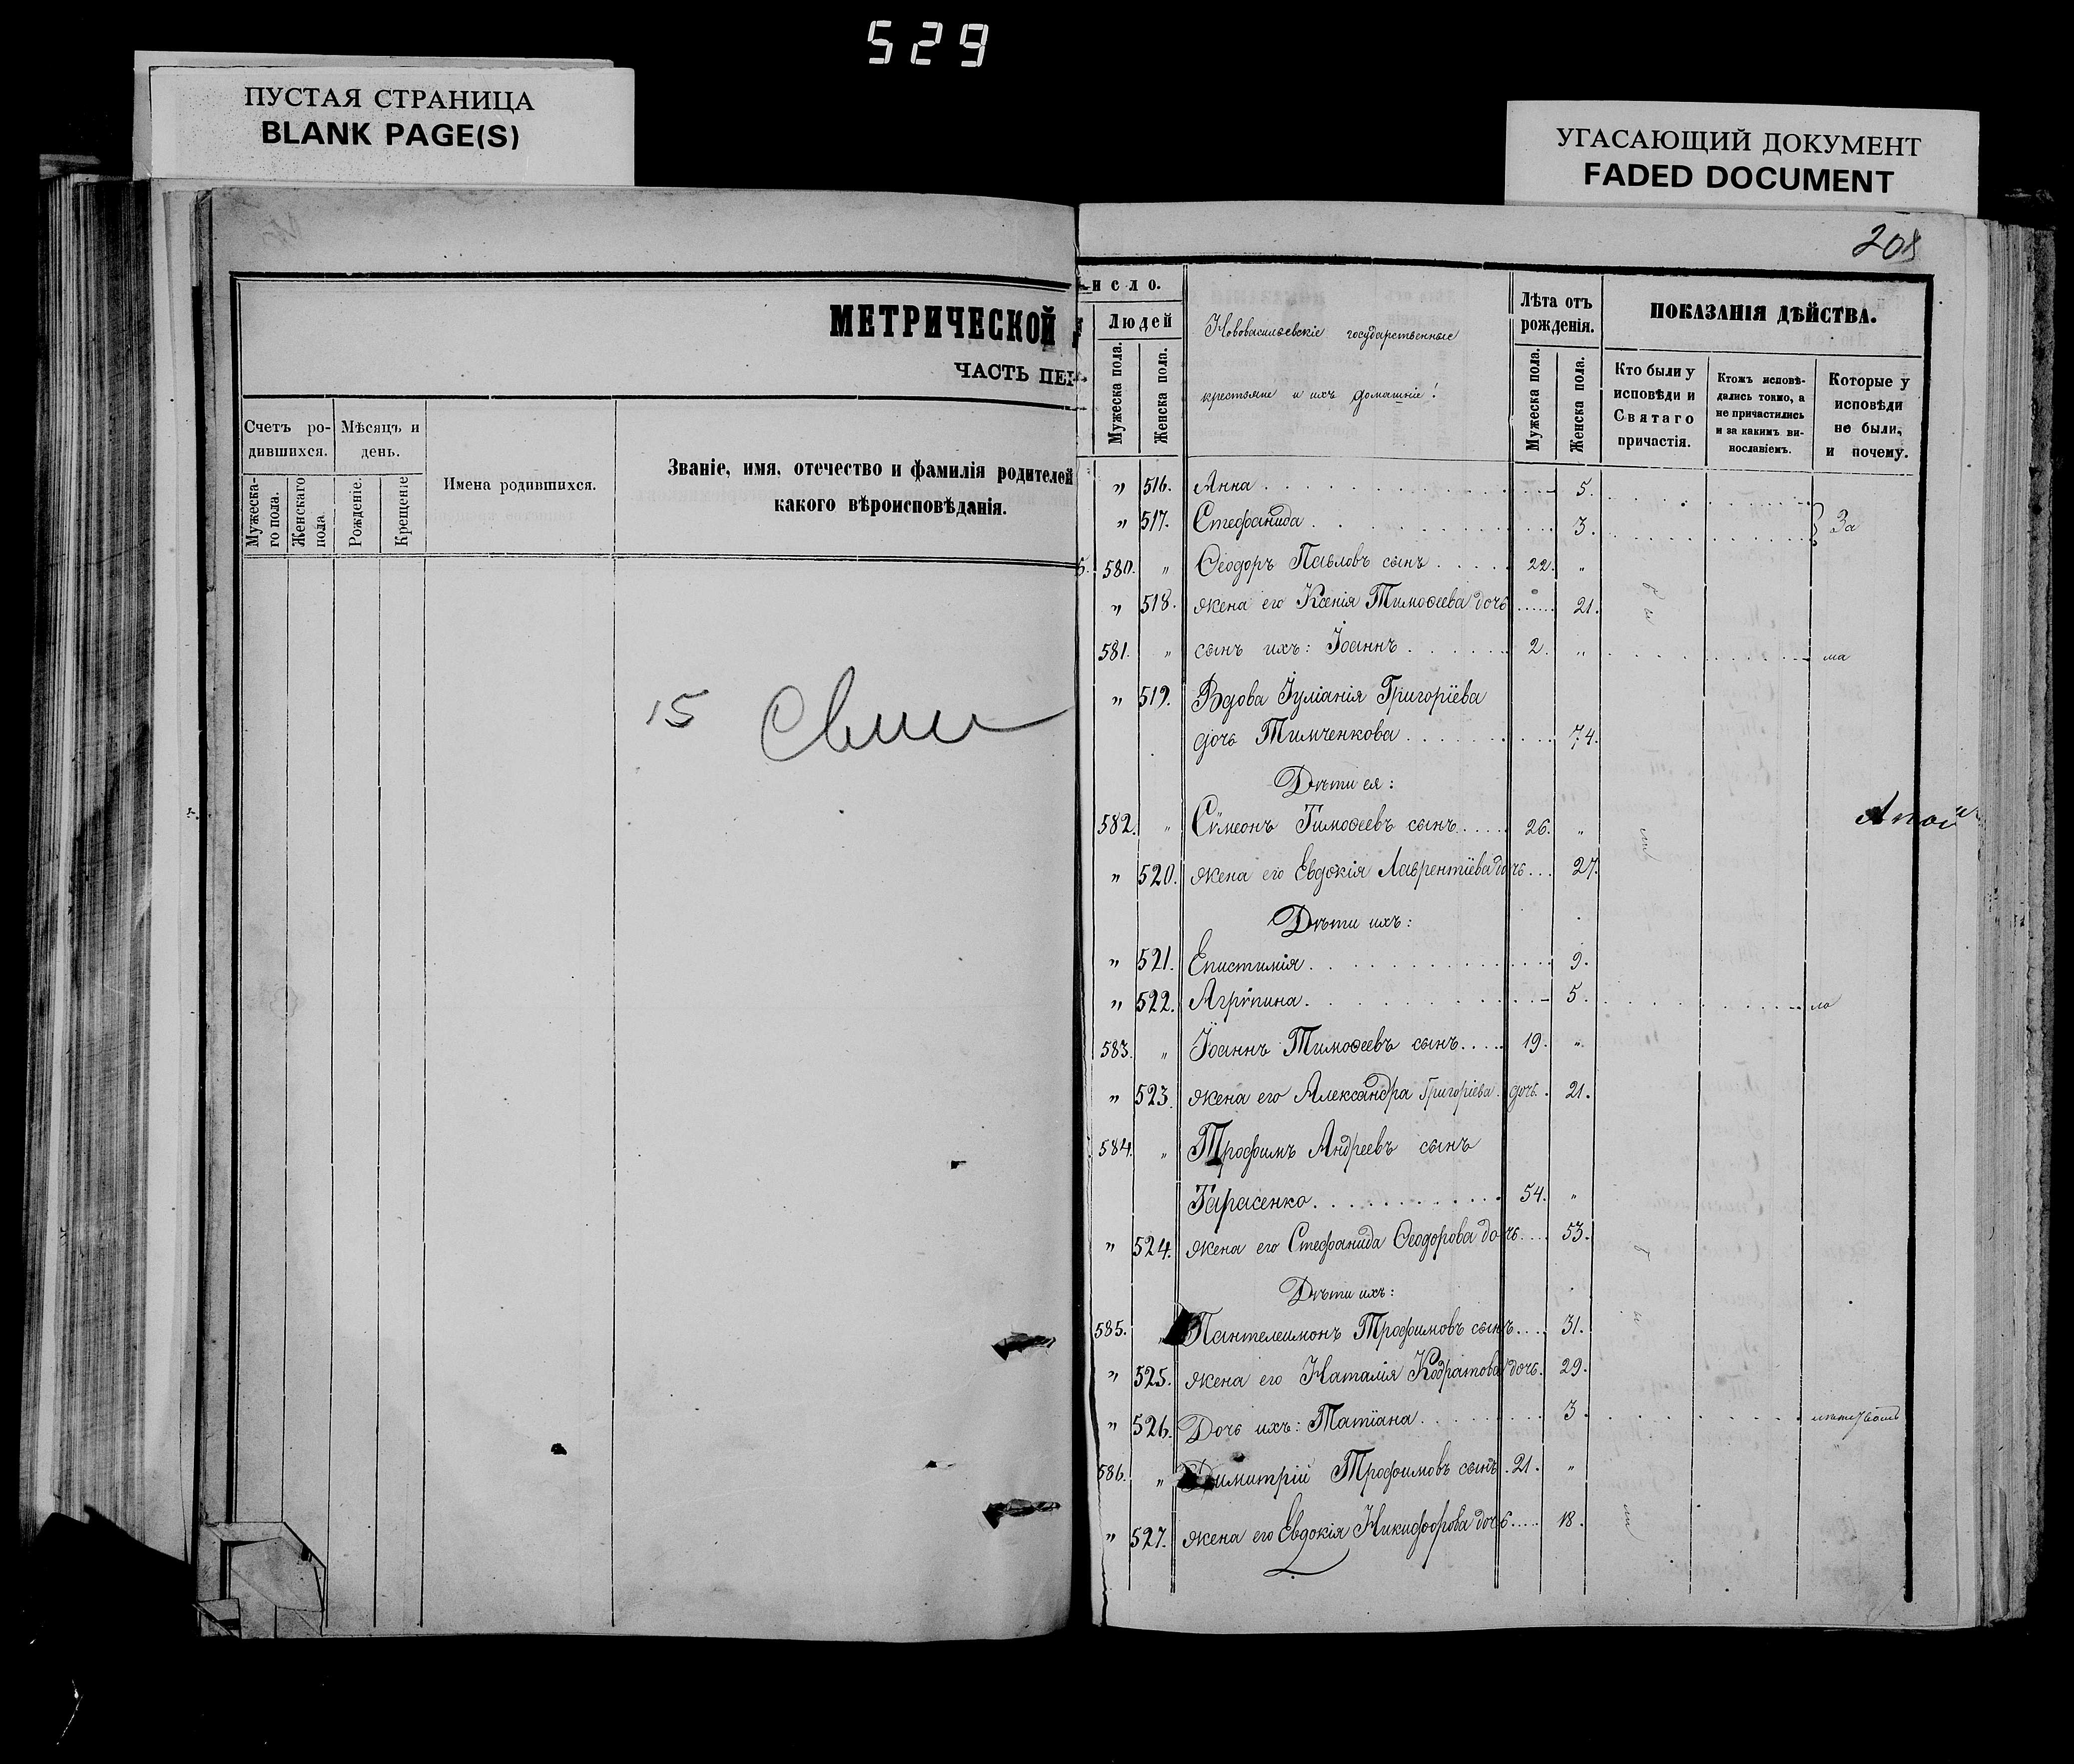 529
ПУСТАЯ СТРАНИЦА
BLANK PAGE(S)
УГАСАЮЩИЙ ДОКУМЕНТ
FADED DOCUMENT
МЕТРИЧЕСКОЙ
ЧАСТЬ ПЕР
Счетъ ро-
дившихся.
Мѣсяцъ и
день.
Мужеска-
го пола.
Женскаго
пола.
Рожденіе.
Крещеніе
Имена родившихся.
Званіе, имя, отечество и фамилія родителей
какого вѣроисповѣданія.
15
208
и с л о.
Людей
Мужеска пола.
Женска пола.
Нововасильевскіе государственные
крестьяне и ихъ домашніе!
Лѣта отъ
рожденія.
Мужеска пола.
Женска пола.
ПОКАЗАНІЯ ДѢЙСТВА.
Кто были у
исповѣди и
Святаго
причастія.
Ктожъ исповѣ-
дались токмо, а
не причастились
и за какимъ ви-
нословіемъ.
Которые у
исповѣди
не были,
и почему.
" 516. Анна 5.
" 517. Стефанида 3. За
580. " Ѳеодоръ Павловъ сынъ 22. "
" 518. жена его Ксенія Тимоѳеева дочь 21.
581. " сынъ ихъ: Іоаннъ 2. " ма
" 519. Вдова Іуліанія Григоріева
дочь Тимченкова 74.
Дѣти ея:
582. " Сѵмеонъ Тимоѳеевъ сынъ 26. "
" 520. жена его Евдокія Лаврентіева дочь 27.
Дѣти ихъ:
" 521. Епистимія 9.
" 522. Агрѵпина 5. ло
583. " Іоаннъ Тимоѳеевъ сынъ 19. "
" 523. жена его Александра Григоріева дочь. 21.
584. " Трофимъ Андреевъ сынъ
Тарасенко 54. "
" 524. жена его Стефанида Ѳеодорова дочь 53.
Дѣти ихъ:
585. " Пантелеимонъ Трофимовъ сынъ 31.
" 525. жена его Наталія Кодратова дочь. 29.
" 526. Дочь ихъ: Татіана 3.
586. " Димитрій Трофимовъ сынъ 21. "
" 527. жена его Евдокія Никифорова дочь 18.